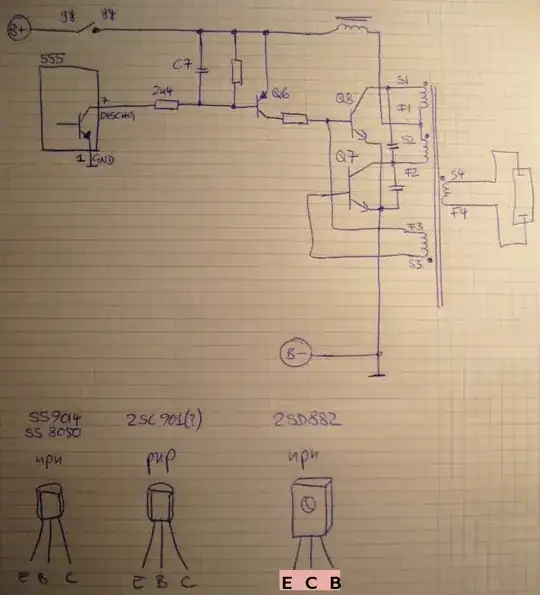 B+
555
7
DISCHG
1 GND
C7
Q6
Q8
Q7
S1
F1
S2
F2
S4
F4
F3
S3
B-
SS9014
SS 8050
2SC901(?)
2SD882
npn
pnp
npn
E B C
E B C
E C B